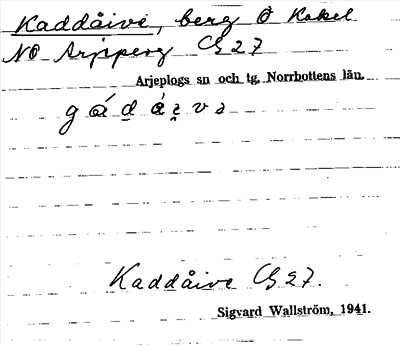 Kaddåive, berg O Kakel
NO Arjeperg Cg 27
Arjeplogs sn och tg, Norrbottens län.
Kaddåive Cg 27.
Sigvard Wallström, 1941.